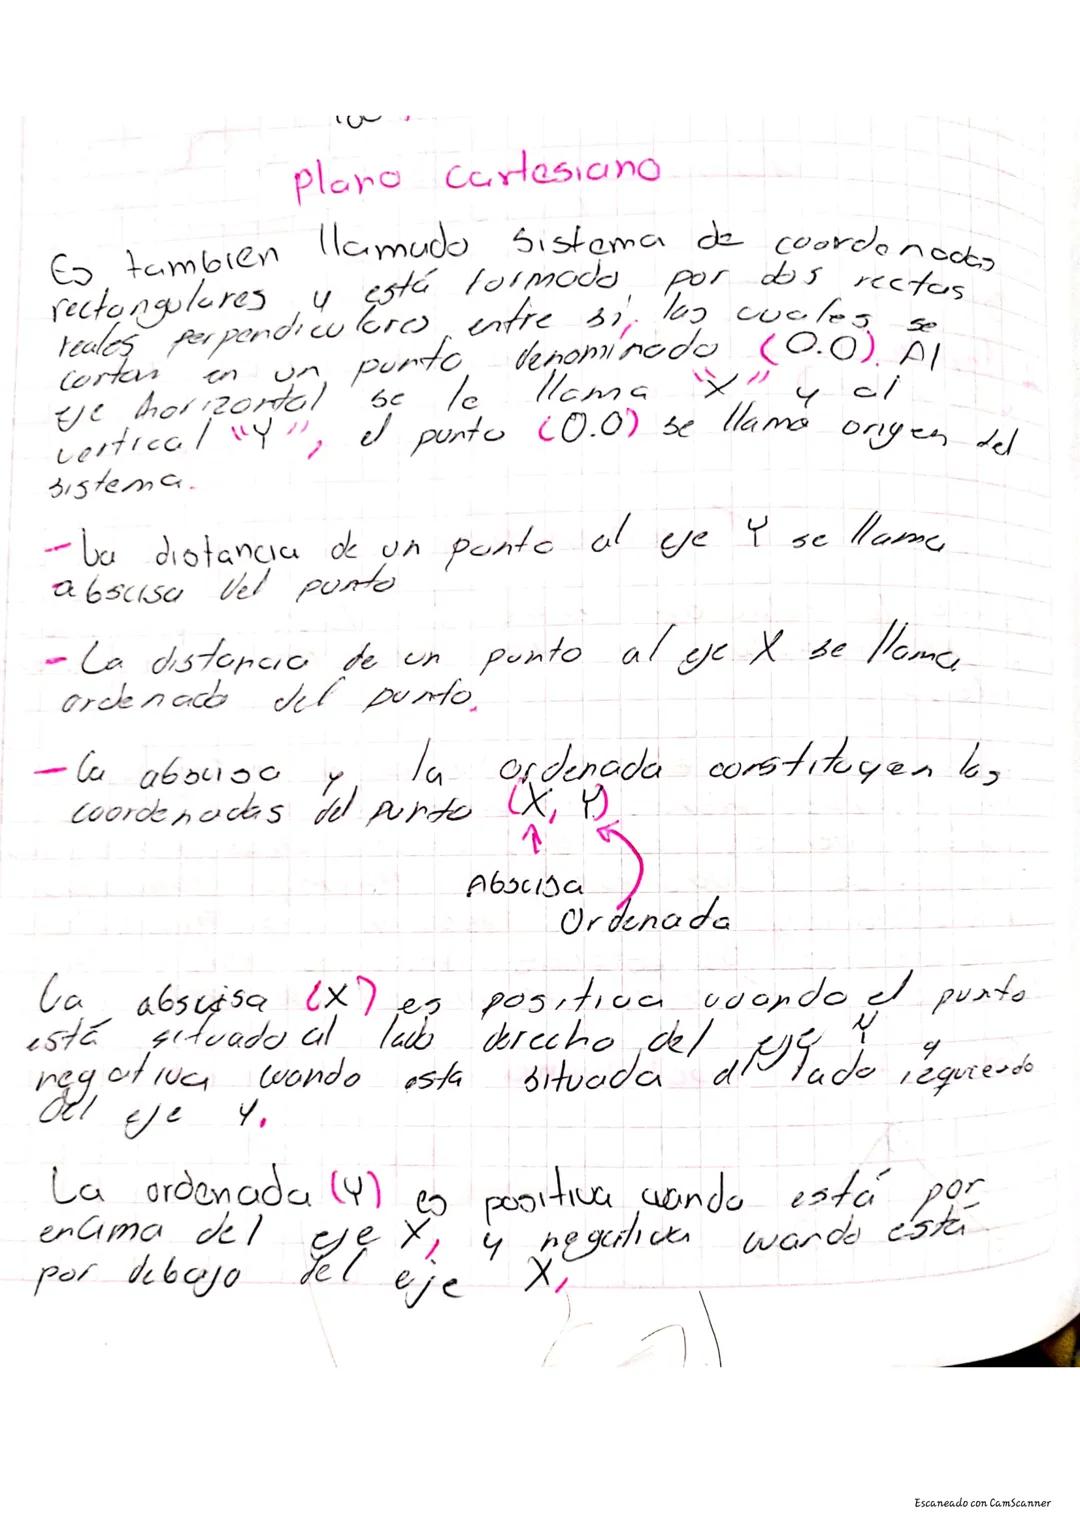 plano cartesiano
Es tambien llamado sistema de coordenadas
rectangulares y está formado por dos rectas
reales perpendiculares entre si, las cuales se
cortan en un punto denominado (0.0). Al
eje horizontal se le llama "X" y al
vertical "Y", el punto (0.0) se llama origen del
sistema.
- La distancia de un punto al eje Y se llama
abscisa del punto
- La distancia de un punto al eje X se llama
ordenada del punto.
- La abscisa y la ordenada constituyen las
coordenadas del punto (X, Y)
Abscisa
Ordenada
La abscisa (X) es positiva cuando el punto
está situado al lado derecho del eje Y y
negativa cuando esta situada al lado izquierdo
del eje Y.
La ordenada (Y) es positiva cuando está por
encima del eje X, y negativa cuando está
por debajo del eje X,
Escaneado con CamScanner